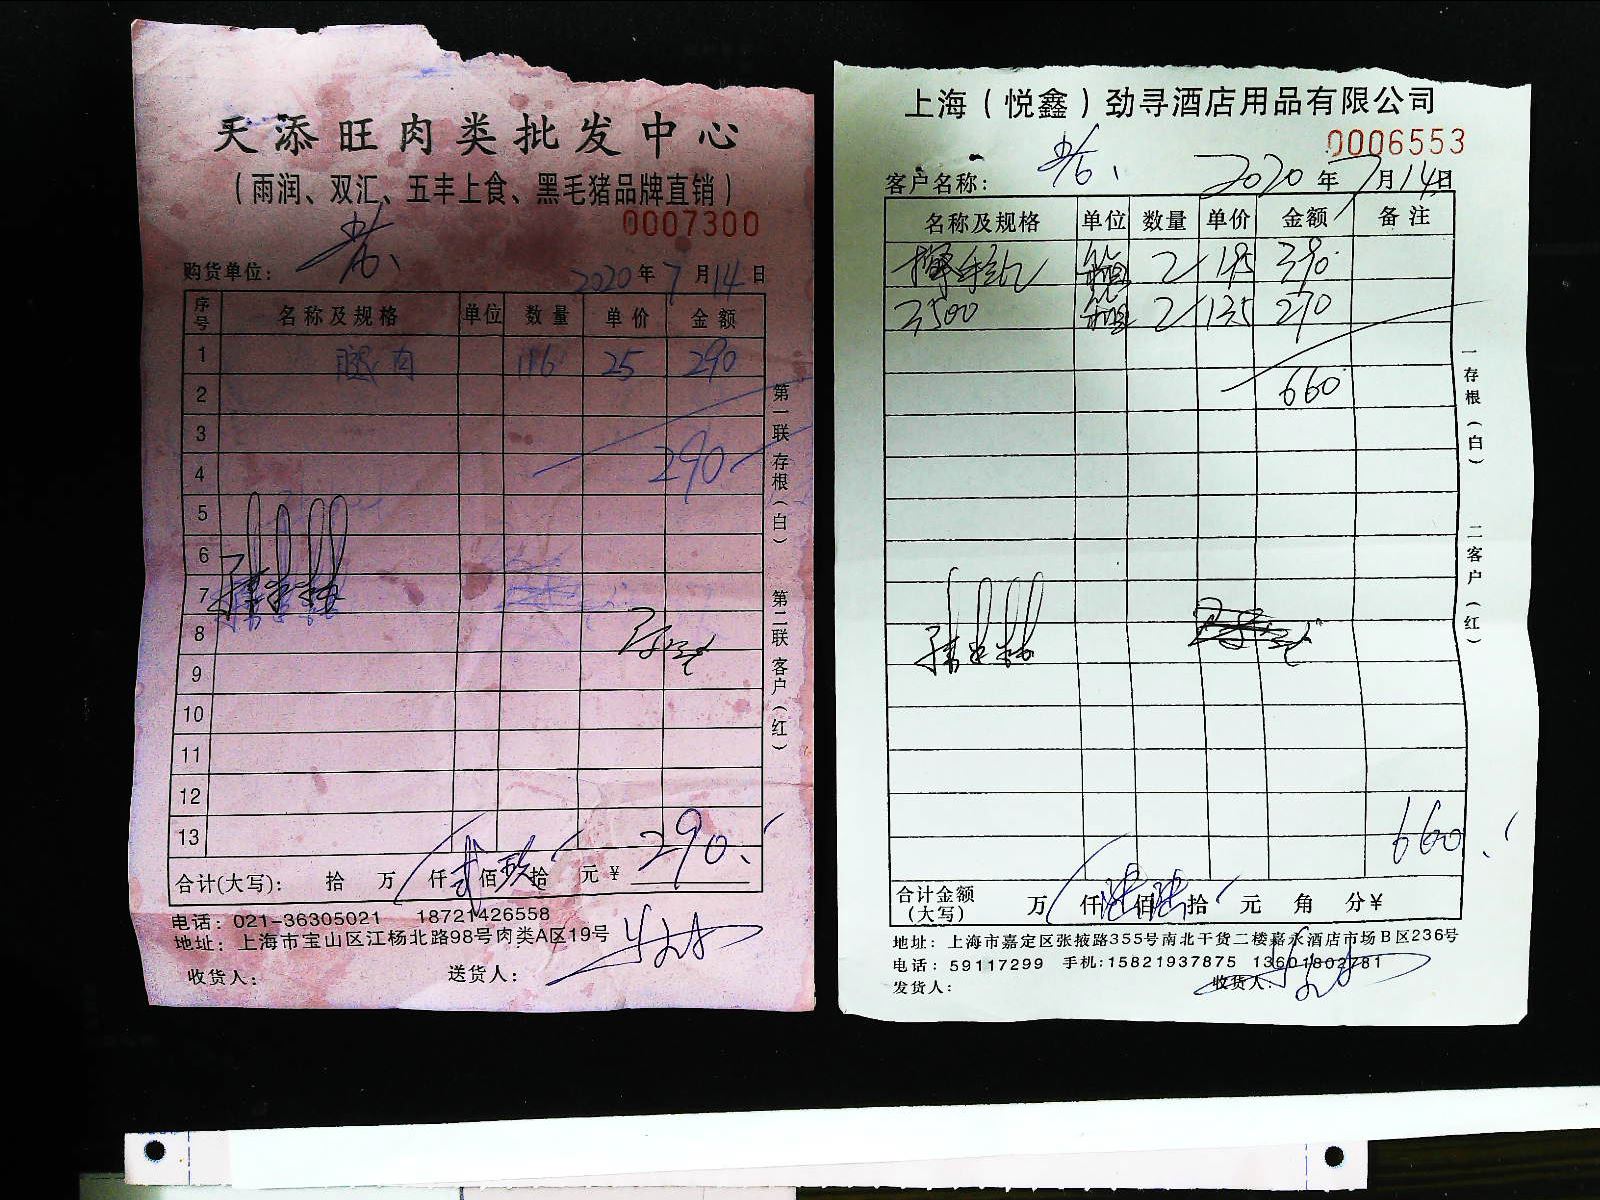 天添旺肉类批发中心
（雨润、双汇、五丰上食、黑毛猪品牌直销）
0007300
购货单位：
2020年7月14日
序号 名称及规格 单位 数量 单价 金额
1 腿肉 116 25 290
2
3
4 290
5
6
7
8
9
10
11
12
13
合计(大写)： 拾 万 仟 贰佰 玖拾 元 ¥ 290.
电话：021-36305021 18721426558
地址：上海市宝山区江杨北路98号肉类A区19号
收货人： 送货人：
第一联 存根（白） 第二联 客户（红）
上海（悦鑫）劲寻酒店用品有限公司
0006553
客户名称： 2020年7月14日
名称及规格 单位 数量 单价 金额 备注
擦手纸 箱 2 195 390
2500 箱 2 135 270
660
660
合计金额（大写） 万 仟 陆佰 陆拾 元 角 分¥
地址：上海市嘉定区张掖路355号南北干货二楼嘉永酒店市场B区236号
电话：59117299 手机：15821937875 13601802781
发货人： 收货人：
一存根（白） 二客户（红）